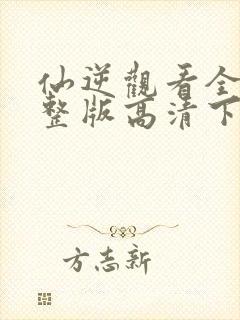 仙逆觀看全
整版高清下
方志新